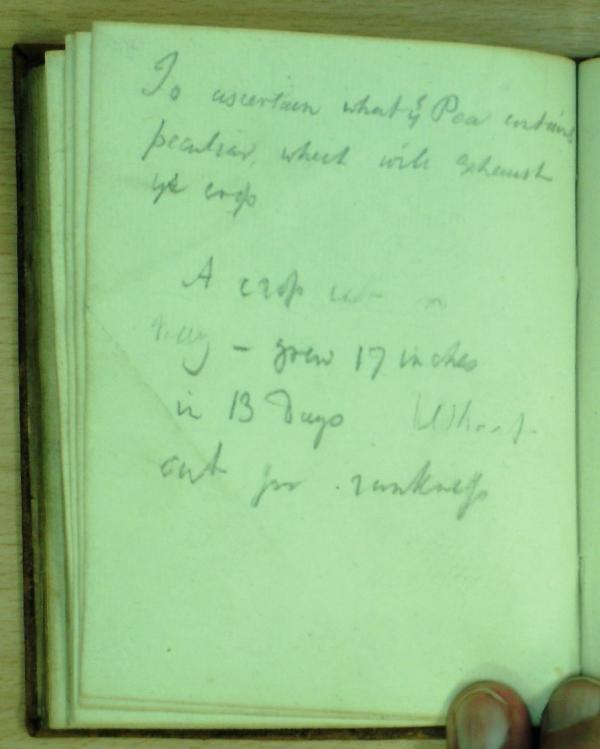 To ascertain what ye Pea contains
peculiar, which will exhaust
ye crop
A crop cut
- grew 17 inches
in 13 Days
cut for rankness